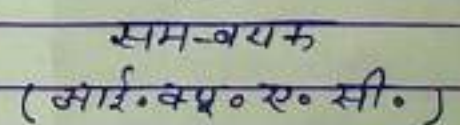 समन्वयक
(आई॰क्यू॰ए॰सी॰)